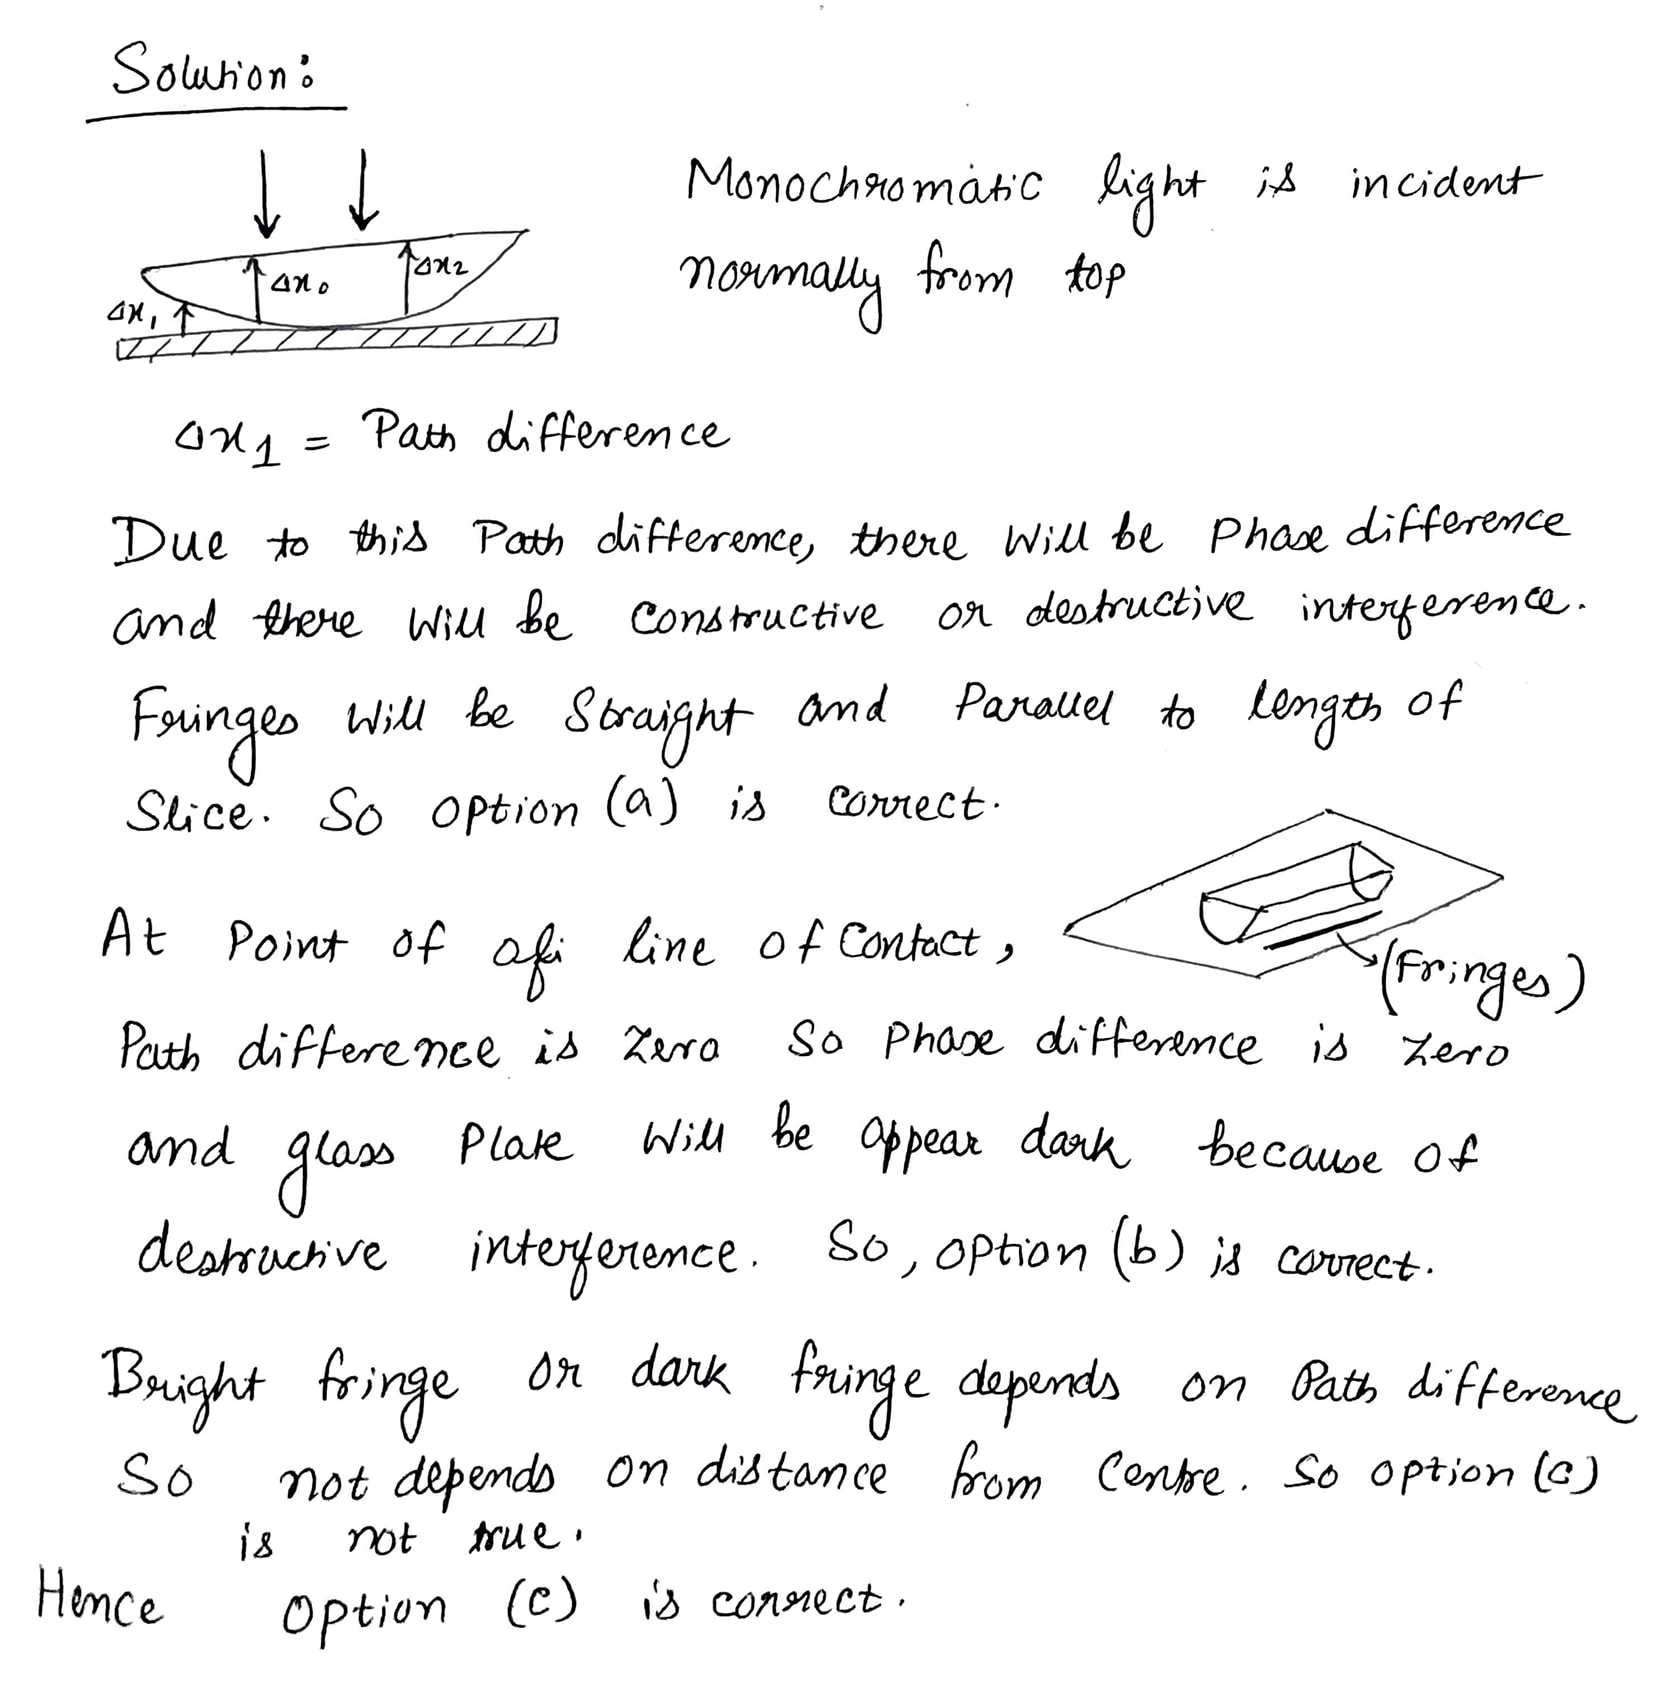 Solution:
Δx₀
Δx₂
Δx₁
Monochromatic light is incident
normally from top
Δx1 = Path difference
Due to this Path difference, there will be Phase difference
and there will be constructive or destructive interference.
Fringes will be Straight and Parallel to length of
Slice. So option (a) is correct.
At Point of line of contact,
(Fringes)
Path difference is zero so Phase difference is zero
and glass Plate will be appear dark because of
destructive interference. So, option (b) is correct.
Bright fringe or dark fringe depends on Path difference
So not depends on distance from Centre. So option (c)
is not true.
Hence option (c) is correct.